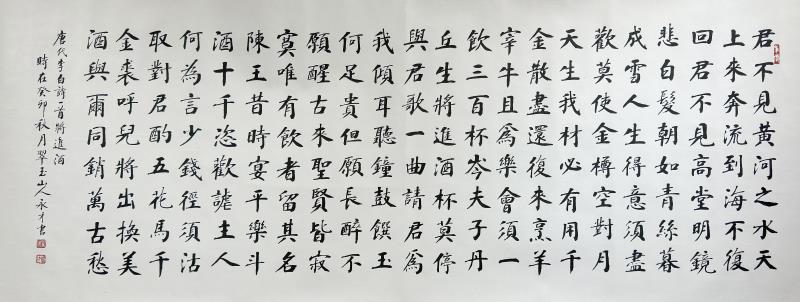 君不見黃河之水天
上來奔流到海不復
回君不見高堂明鏡
悲白髮朝如青絲暮
成雪人生得意須盡
歡莫使金樽空對月
天生我材必有用千
金散盡還復來烹羊
宰牛且爲樂會須一
飲三百杯岑夫子丹
丘生將進酒杯莫停
與君歌一曲請君爲
我傾耳聽鐘鼓饌玉
何足貴但願長醉不
願醒古來聖賢皆寂
寞唯有飲者留其名
陳王昔時宴平樂斗
酒十千恣歡謔主人
何為言少錢徑須沽
取對君酌五花馬千
金裘呼兒將出換美
酒與爾同銷萬古愁
唐代李白詩一首將進酒
時在癸卯秋月翠玉山人永才書